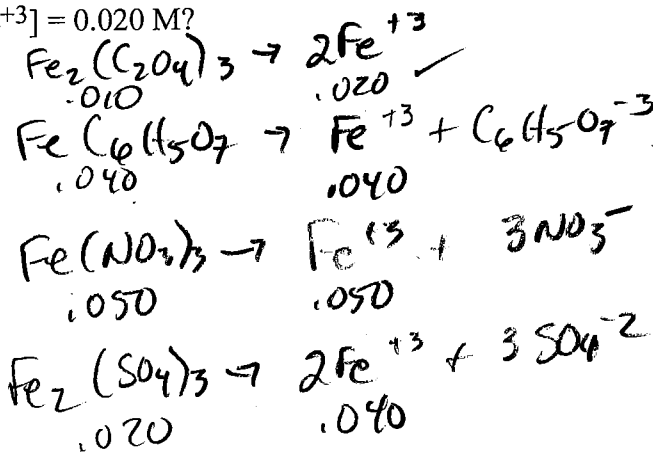 +3] = 0.020 M?
Fe₂(C₂O₄)₃ → 2Fe⁺³
.010 .020 ✓
FeC₆H₅O₇ → Fe⁺³ + C₆H₅O₇⁻³
.040 .040
Fe(NO₃)₃ → Fe⁺³ + 3NO₃⁻
.050 .050
Fe₂(SO₄)₃ → 2Fe⁺³ + 3SO₄⁻²
.020 .040